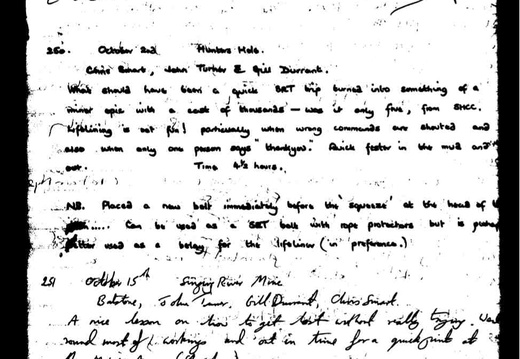 250. October 2nd Hunters Hole.
Chris Smart, John Turner & Gill Durrant.
What should have been a quick SRT trip turned into something of a
minor epic with a cast of thousands — was it only five, from SMCC.
Lifelining is not fun! particularly when wrong commands are shouted and
also when only one person says "thankyou." Quick fester in the mud and
out. Time 4½ hours.
NB. Placed a new bolt immediately before the 'squeeze' at the head of
..... Can be used as a SRT bolt with rope protectors but is
better used as a belay for the lifeliner (in preference.)
251 October 15th Singing River Mine
John Turner, Gill Durrant, Chris Smart.
A nice lesson on how to get lost without really trying.
round most of workings and out in time for a quick pint at